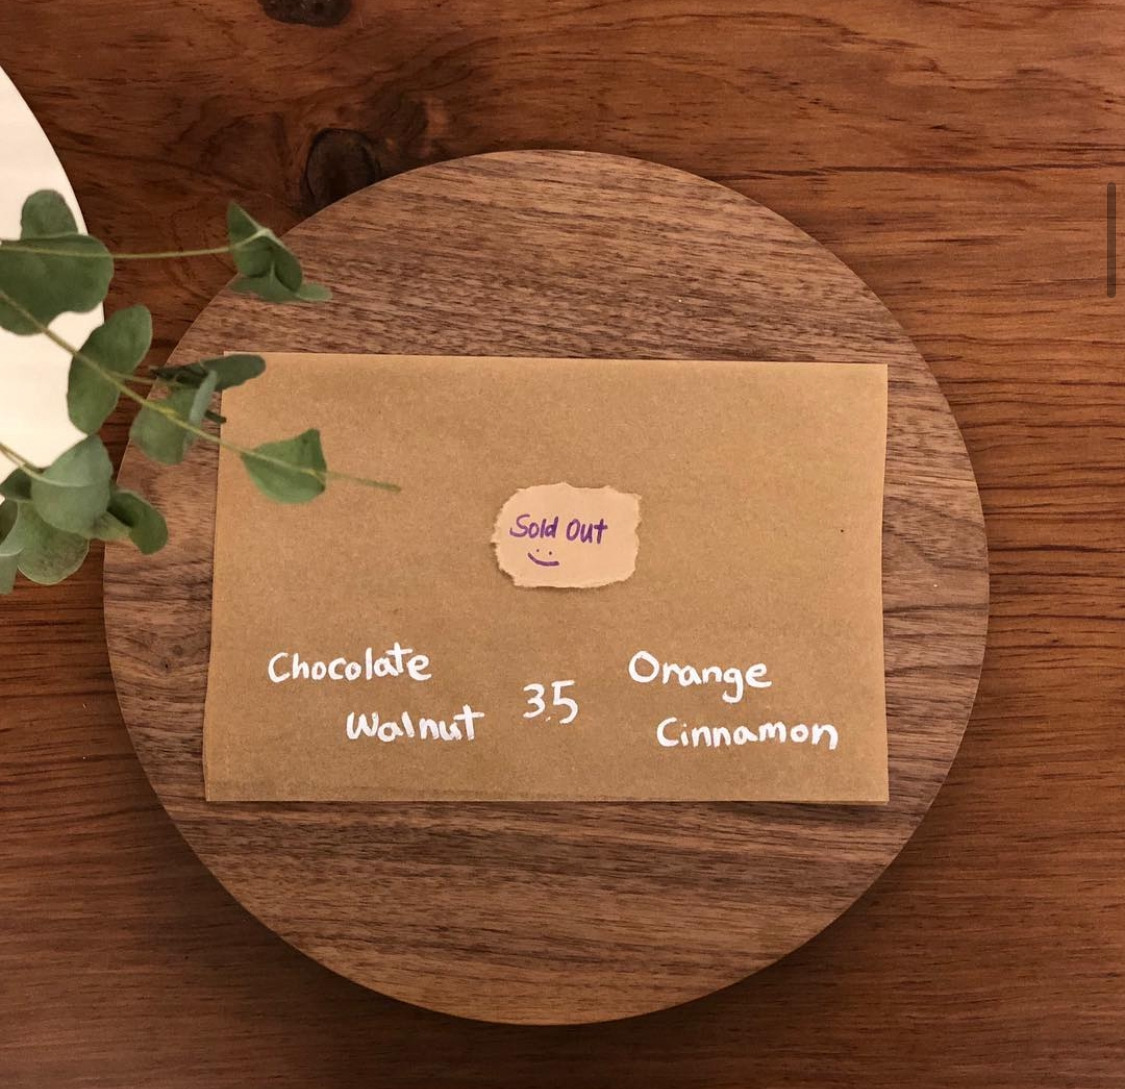 Sold Out
Chocolate
Walnut
3.5
Orange
Cinnamon